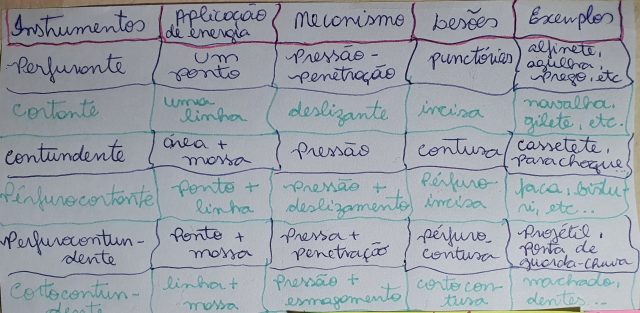 Instrumentos | Aplicação de energia | Mecanismo | Lesões | Exemplos
Perfurante | um ponto | Pressão-penetração | punctórias | alfinete, agulha, prego, etc
Cortante | uma linha | deslizante | incisa | navalha, gilete, etc.
Contundente | área + massa | Pressão | contusa | cassetete, parachoque...
Pérfurocortante | Ponto + linha | Pressão + deslizamento | Pérfuro-incisa | faca, bisturi, etc...
Perfurocontundente | Ponto + massa | Pressa + penetração | pérfuro-contusa | Projétil, ponta de guarda-chuva
Cortocontundente | linha + massa | Pressão + esmagamento | cortocontusa | machado, dentes...